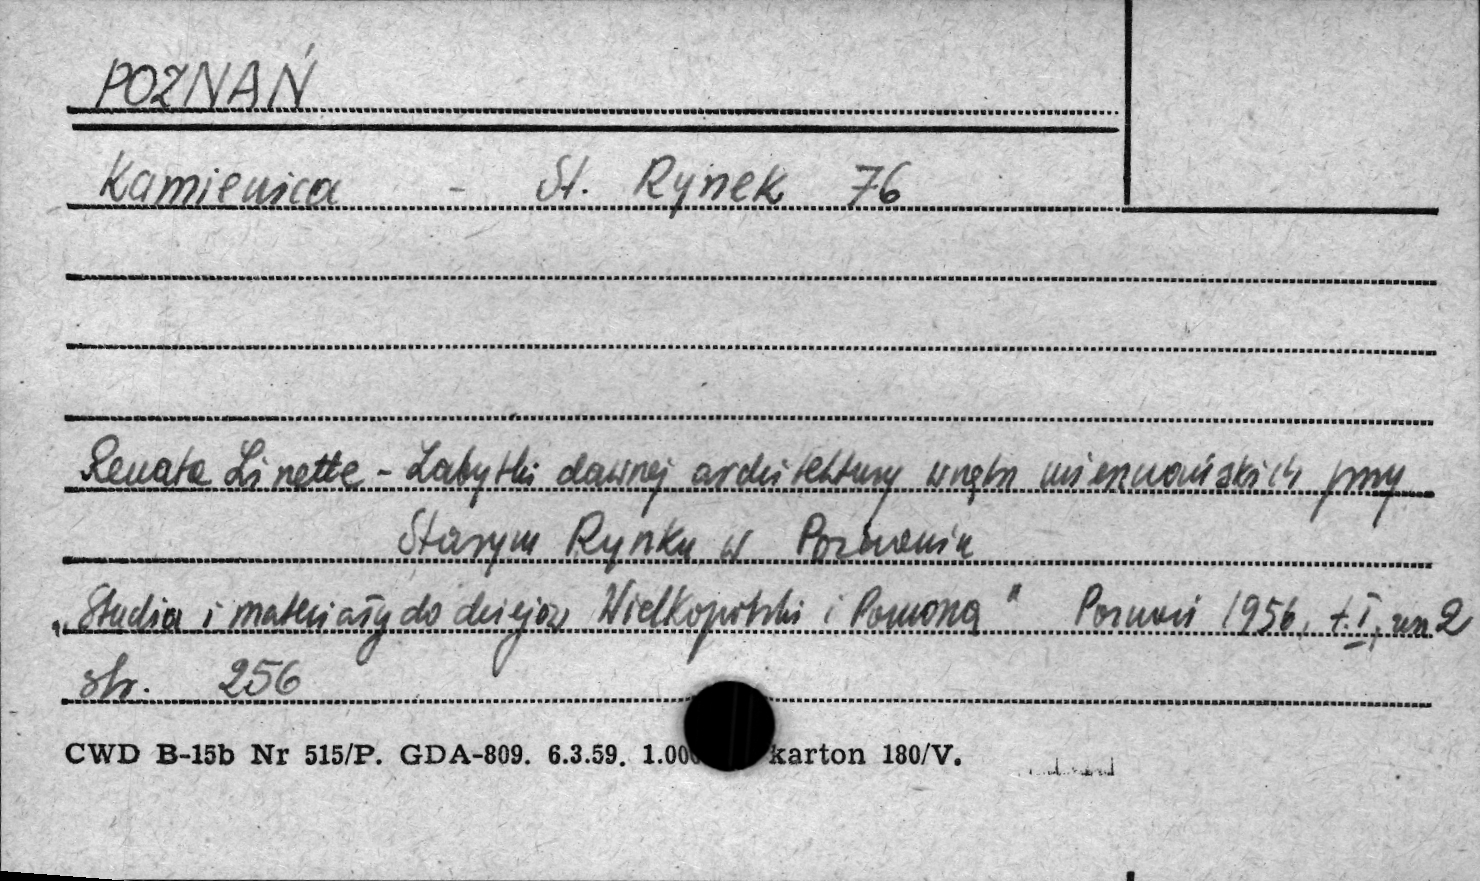 POZNAŃ
Kamienica - St. Rynek 76
Renata Linette - Zabytki dawnej architektury wnętrz mieszczańskich przy
Starym Rynku w Poznaniu
„Studia i materiały do dziejów Wielkopolski i Pomorza" Poznań 1956, t. I, z. 2
str. 256
CWD B-15b Nr 515/P. GDA-809. 6.3.59. 1.000 karton 180/V.